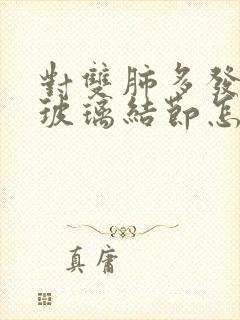 對雙肺多發
玻璃結節怎
真庸